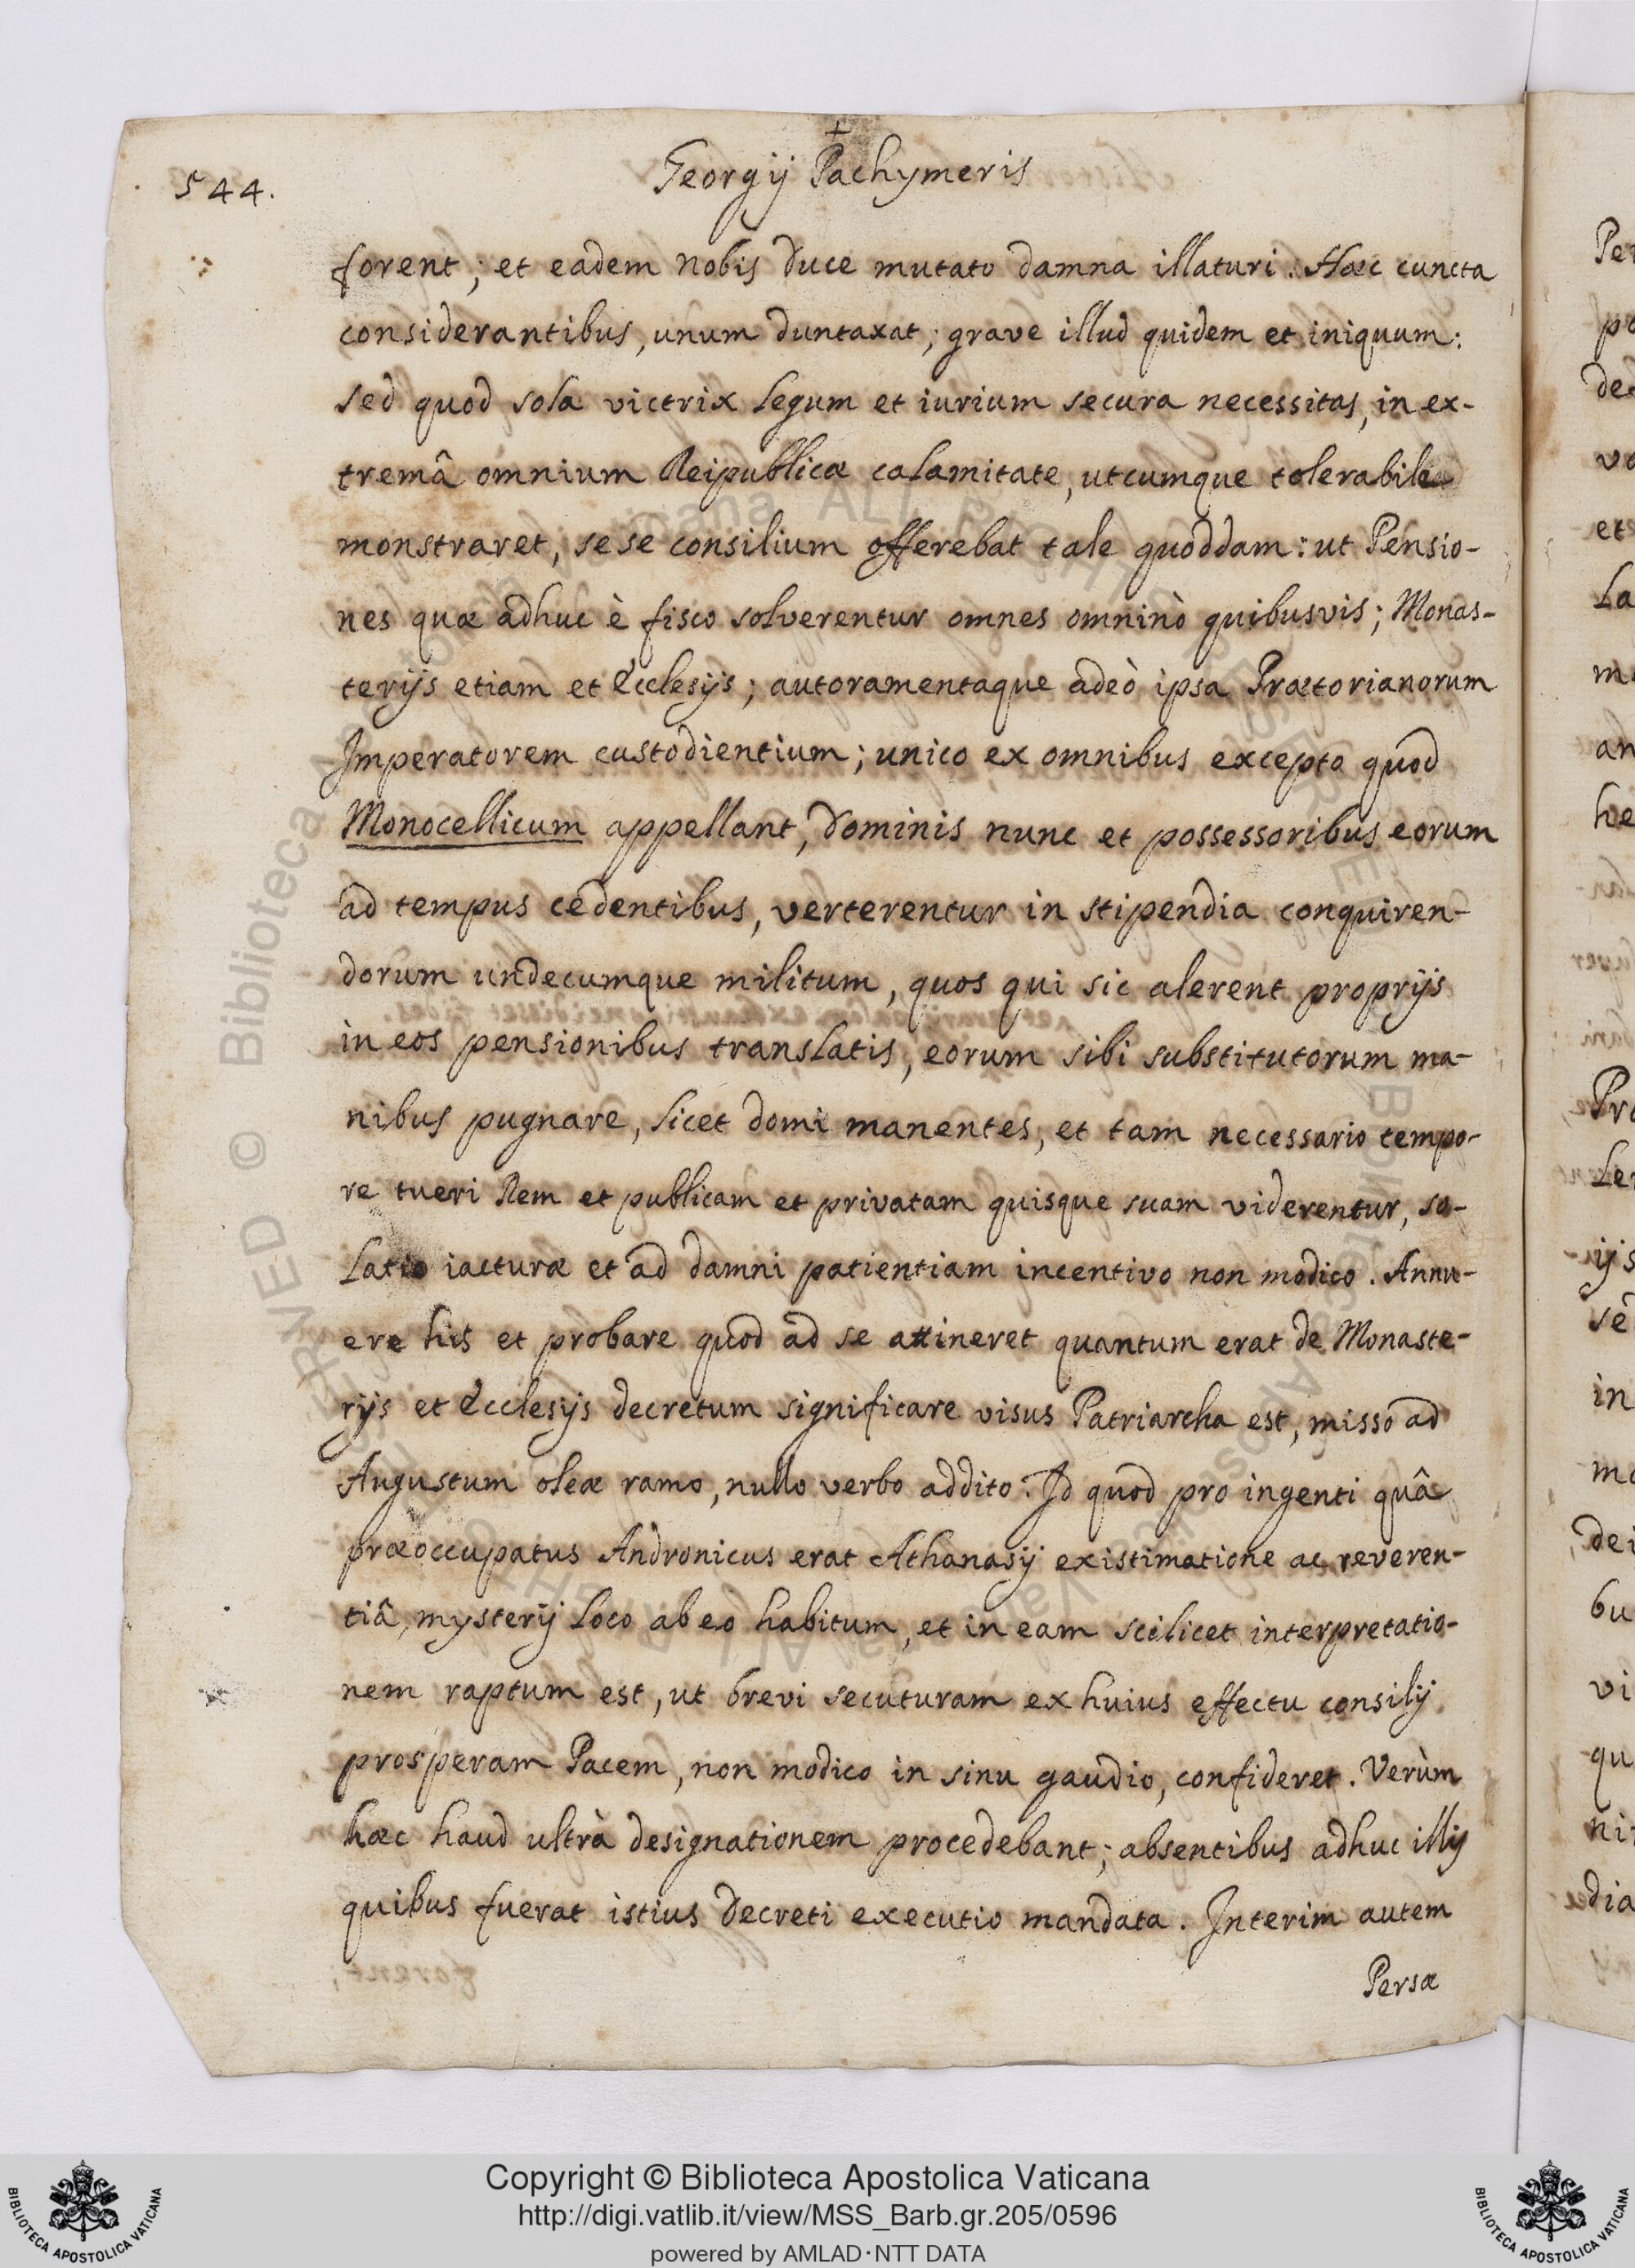 544.
Georgij Pachymeris
forent; et eadem nobis duce mutato damna illaturi. Hæc cuncta
considerantibus, unum duntaxat; grave illud quidem et iniquum:
sed quod sola victrix legum et iurium secura necessitas, in ex-
tremâ omnium Reipublicæ calamitate, utcumque tolerabile
monstraret, sese consilium offerebat tale quoddam: ut Pensio-
nes quæ adhuc è fisco solverentur omnes omninò quibusvis; Monas-
terijs etiam et Ecclesijs; autoramentaque adeò ipsa Prætorianorum
Imperatorem custodientium; unico ex omnibus excepto quod
Monocellicum appellant, dominis nunc et possessoribus eorum
ad tempus cedentibus, verterentur in stipendia conquiren-
dorum undecumque militum, quos qui sic alerent proprijs
in eos pensionibus translatis, eorum sibi substitutorum ma-
nibus pugnare, licet domi manentes, et tam necessario tempo-
re tueri Rem et publicam et privatam quisque suam viderentur, so-
latio iacturæ et ad damni patientiam incentivo non modico. Annu-
ere his et probare quod ad se attineret quantum erat de Monaste-
rijs et Ecclesijs decretum significare visus Patriarcha est, misso ad
Augustum oleæ ramo, nullo verbo addito. Id quod pro ingenti quâ
præoccupatus Andronicus erat Athanasij existimatione ac reveren-
tiâ, mysterij loco ab eo habitum, et in eam scilicet interpretatio-
nem raptum est, ut brevi secuturam ex huius effectu consilij
prosperam Pacem, non modico in sinu gaudio, confideret. Verùm
hæc haud ultrà designationem procedebant; absentibus adhuc illis
quibus fuerat istius decreti executio mandata. Interim autem
Persæ
Copyright © Biblioteca Apostolica Vaticana
http://digi.vatlib.it/view/MSS_Barb.gr.205/0596
powered by AMLAD·NTT DATA
BIBLIOTECA APOSTOLICA VATICANA
BIBLIOTECA APOSTOLICA VATICANA